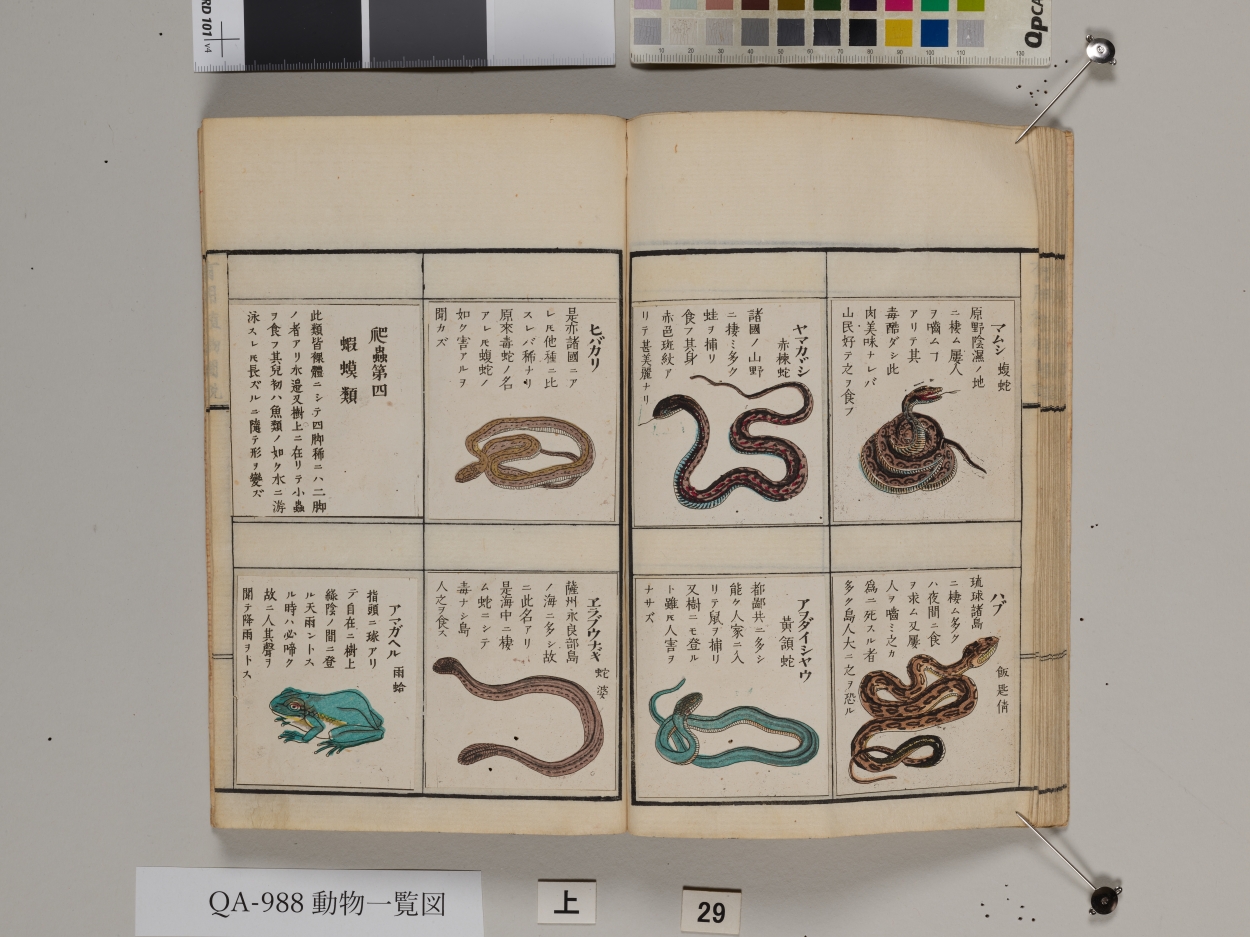 マムシ 蝮蛇
原野陰濕ノ地
ニ棲ム屢人
ヲ嚙ムヿ
アリテ其
毒酷ダシ此
肉美味ナレバ
山民好テ之ヲ食フ
ヤマカヾシ
赤楝蛇
諸國ノ山野
ニ棲ミ多ク
蛙ヲ捕リ
食フ其身
赤色斑紋ア
リテ甚美麗ナリ
ハブ 飯匙倩
琉球諸島
ニ棲ム多ク
ハ夜間ニ食
ヲ求ム又屢
人ヲ嚙ミ之カ
爲ニ死スル者
多ク島人大ニ之ヲ恐ル
アヲダイシヤウ
黃頷蛇
都鄙共ニ多シ
能ク人家ニ入
リテ鼠ヲ捕リ
又樹ニモ登ル
ト雖𪜈人害ヲ
ナサズ
ヒバカリ
是亦諸國ニア
レ𪜈他種ニ比
スレバ稀ナリ
原來毒蛇ノ名
アレ𪜈蝮蛇ノ
如ク害アルヲ
聞カズ
爬蟲第四
蝦蟆類
此類皆裸體ニシテ四脚稀ニハ二脚
ノ者アリ水邉又樹上ニ在リテ小蟲
ヲ食フ其兒初ハ魚類ノ如ク水ニ游
泳スレ𪜈長ズルニ隨テ形ヲ變ズ
ヱラブウナキ 蛇婆
薩州永良部島
ノ海ニ多シ故
ニ此名アリ
是海中ニ棲
ム蛇ニシテ
毒ナシ島
人之ヲ食ス
アマガヘル 雨蛤
指頭ニ球アリ
テ自在ニ樹上
綠陰ノ間ニ登
ル天雨ントス
ル時ハ必啼ク
故ニ人其聲ヲ
聞テ降雨ヲトス
QA-988 動物一覧図
上
29
RD 101 v4
QPCA
10 20 30 40 50 60 70 80 90 100 130